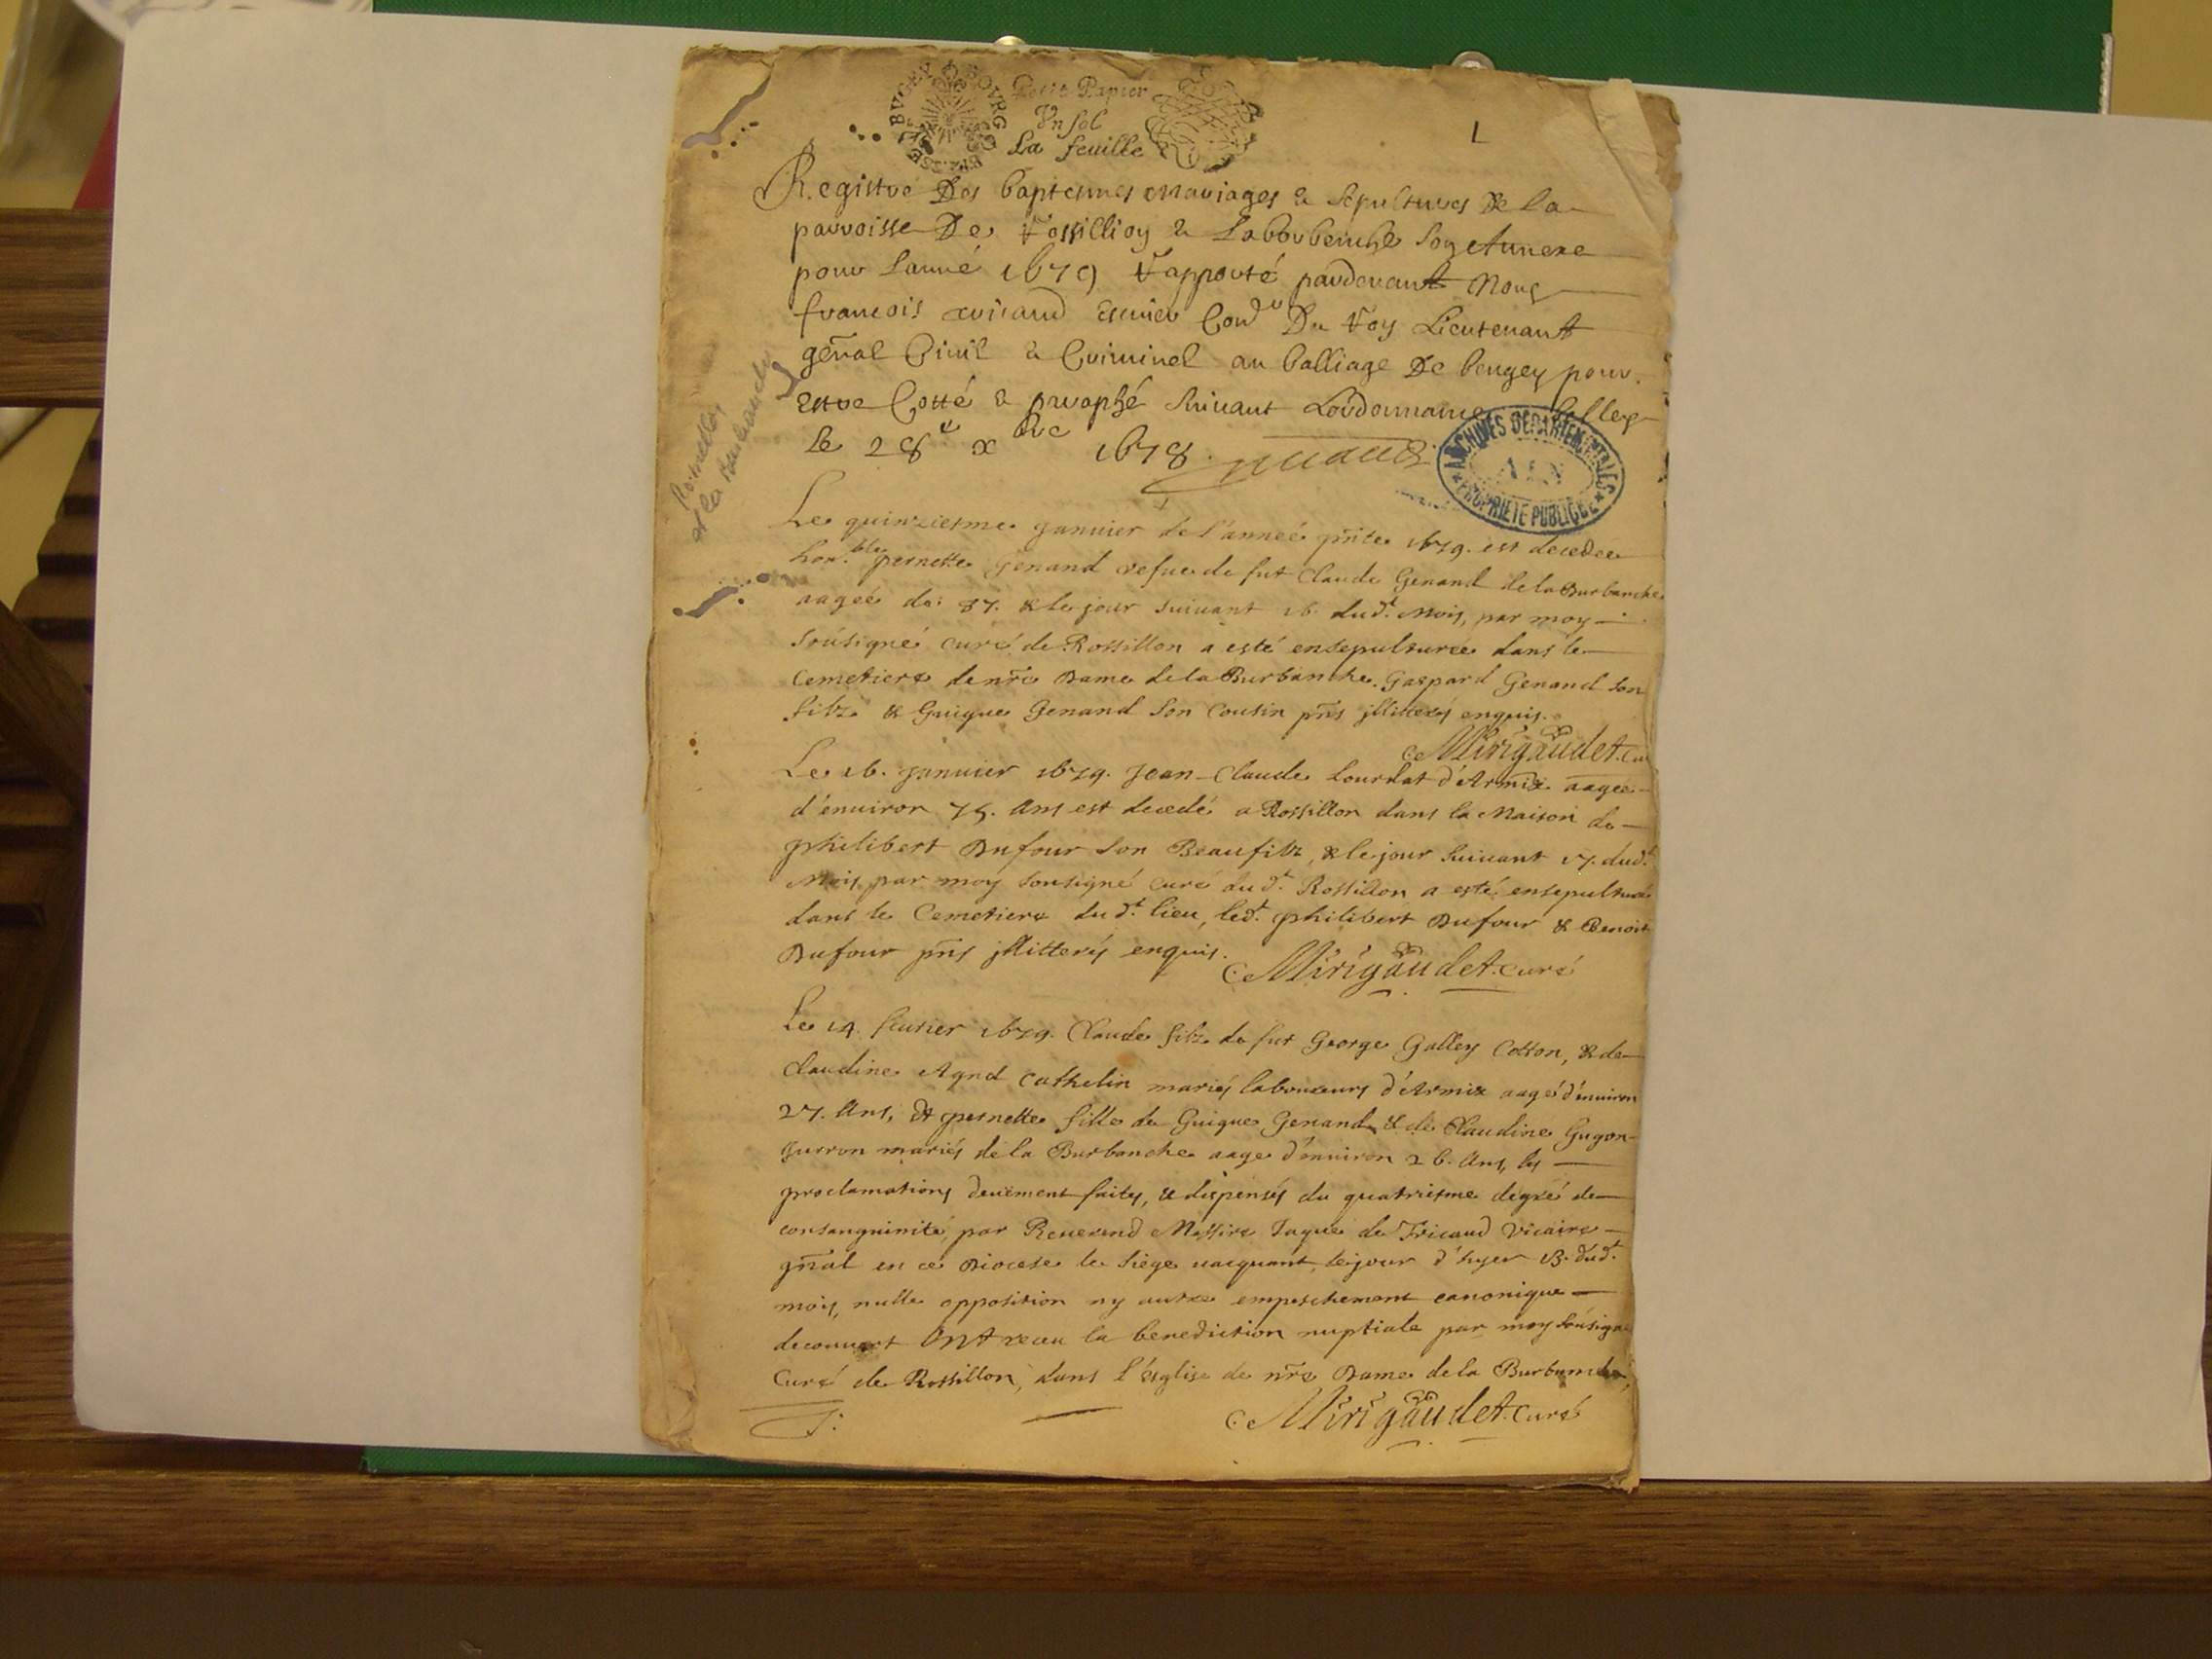 BOVRG BVGEY
Petit Papier
Un sol
La feuille
1
Registre Des baptesmes mariages & sepultures De la
parroisse De Rossillion & Labourbenche son Annexe
pour Lanné 1679 Rapporté pardevant Nous
françois escuier Cons.er Du Roy Lieutenant
gñal Civil & Criminel au balliage De beugey pour
Estre Cotté & paraphé suivant Lordonnance
le 28e xbre 1678.
Rossillon
et la Burbanche
ARCHIVES DÉPARTEMENTALES
AIN
PROPRIÉTÉ PUBLIQUE
Le quinziesme januier de l'anneé pñte 1679. est decedeé
hon.ble pernette Genand vefue de fut Claude Genand de la Burbanche
aageé de: 87. & le jour suiuant 16. dud.t Mois, par moy
sousigné curé de Rossillon a esté ensepultureé dans le
Cemetiere de nr̃e Dame de la Burbanche, Gaspard Genand son
filz & Guigue Genand son Cousin pñs jllitterés enquis.
C Mirigaudet. cu
Le 16. januier 1679. Jean-Claude Lourdat d'Armix aageé
d'enuiron 75. Ans est decedé a Rossillon dans la Maison de
philibert Dufour son Beaufilz, & le jour suiuant 17. dud.t
Mois, par moy sousigné curé dud.t Rossillon a esté ensepulturé
dans le Cemetiere dud.t lieu, led.t philibert Dufour & Benoit
Dufour pñs jllitterés enquis.
C Mirigaudet. curé
Le 14. feurier 1679. Claude filz de fut George Galley Cotton, & de
Claudine Cathelin mariés laboureurs d'Armix aagé d'enuiron
27. Ans, Et pernette fille de Guigue Genand & de Claudine Gugon-
mariés de la Burbanche aage d'enuiron 26. Ans, les
proclamations deuëment faites, & dispensés du quatriesme degré de
consanguinité, par Reuerend Messire Jaque de Tricaud Vicaire
gñal en ce Diocese le siege uacquant, le jour d'hyer 13. dud.t
mois, nulle opposition ny autre empeschement canonique
decouuert Ont receu la benediction nuptiale par moy sousigné
Curé de Rossillon, dans l'Eglise de nr̃e Dame de la Burbanche,
C Mirigaudet. curé